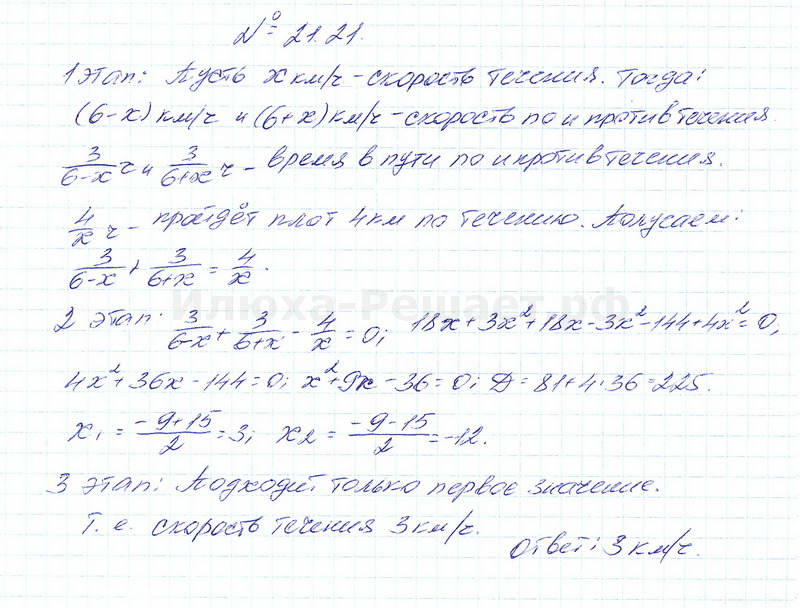 № 21.21.
1 этап: Пусть x км/ч - скорость течения. Тогда:
(6-x) км/ч и (6+x) км/ч - скорость по и против течения.
3/(6-x) ч и 3/(6+x) ч - время в пути по и против течения.
4/x ч - пройдёт плот 4 км по течению. Получаем:
3/(6-x) + 3/(6+x) = 4/x.
Илюха-Решает.рф
2 этап. 3/(6-x) + 3/(6+x) - 4/x = 0; 18x + 3x² + 18x - 3x² - 144 + 4x² = 0,
4x² + 36x - 144 = 0; x² + 9x - 36 = 0; D = 81 + 4·36 = 225.
x₁ = (-9+15)/2 = 3; x₂ = (-9-15)/2 = -12.
3 этап: Подходит только первое значение.
Т. е. скорость течения 3 км/ч.
Ответ: 3 км/ч.